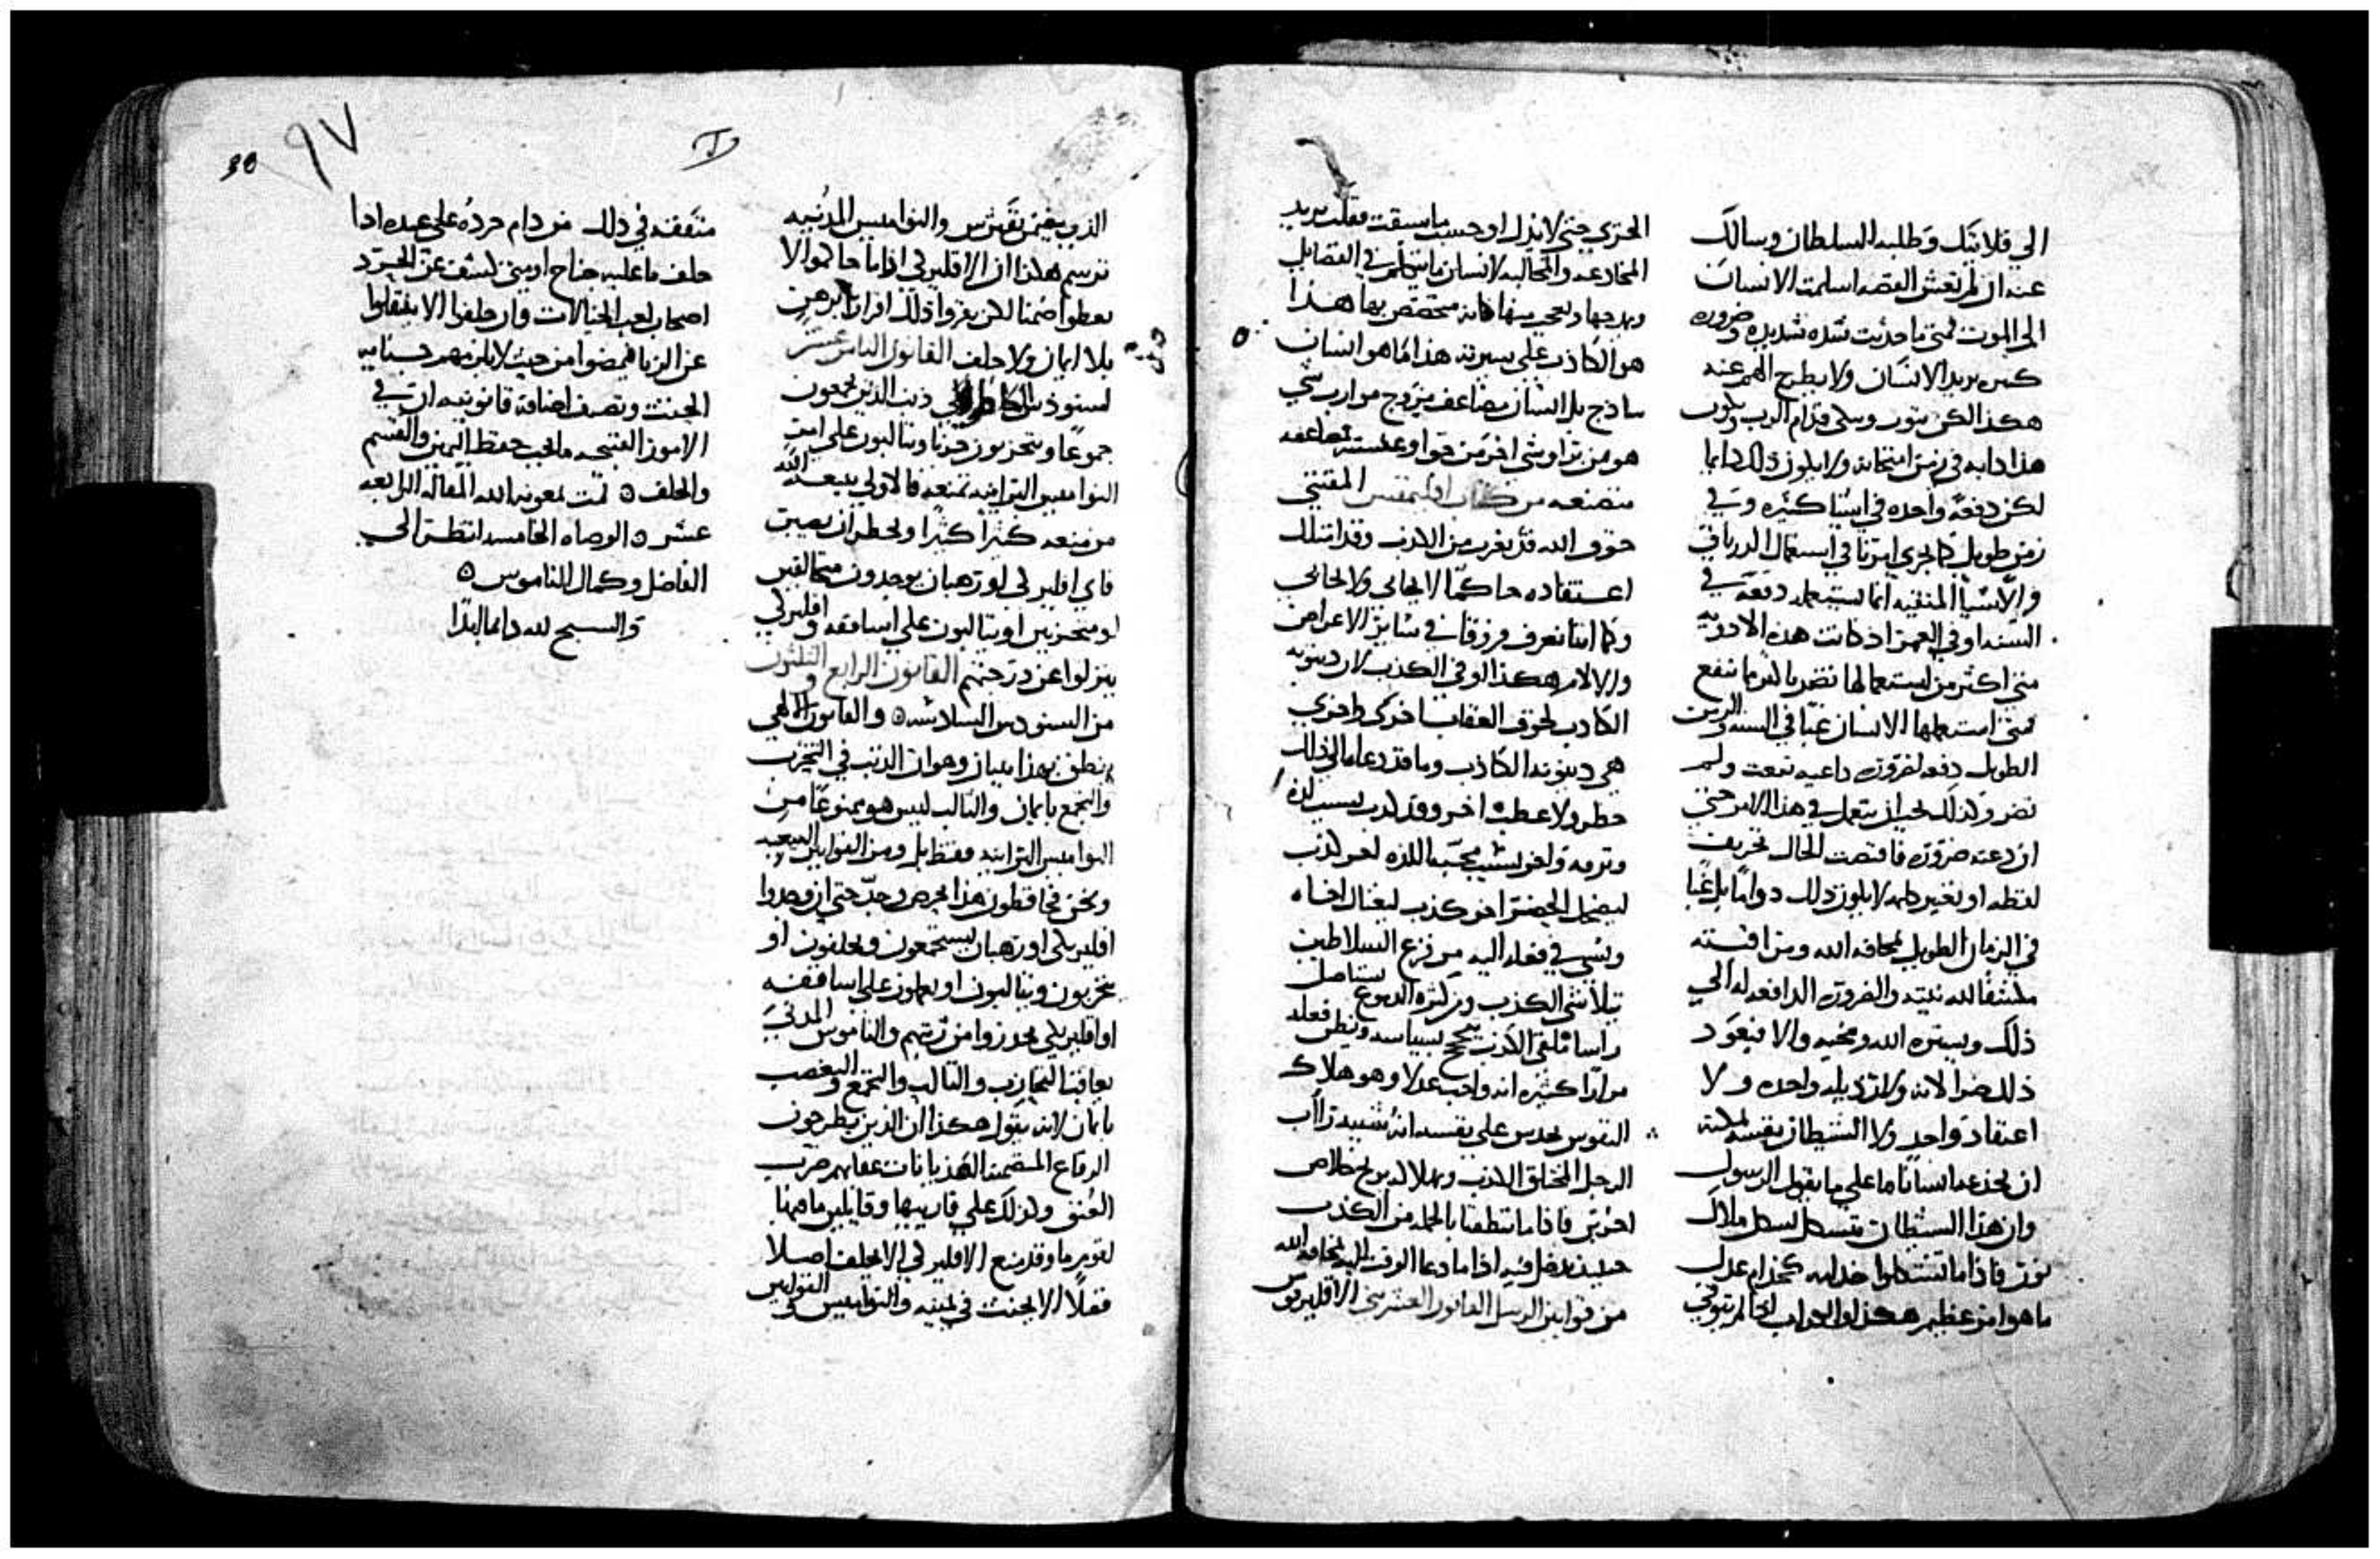 الي قلايتك وطلبه السلطان وسالك
عنه ان لم تغش القصه اسلمت الانسان
الى الموت فمتى ما حدثت شده شديده وضروره
يريد الانسان ولا يطرح الهم عنده
هكذا لكن يتوب ويبكي قدام الرب ويكون
هذا دابه في زمن امتحانه ولا يكون ذلك دايما
لكن دفعة واحده في اشيا كثيره وفي
زمن طويل كما جرى امرنا في استعمال الدرياق
والاشيا المنقيه انما يستعمله دفعة في
السنه او في العمر اذ كانت هذه الادويه
متى اكثر من استعمالها تضر بالذي ما تنفع
فمتى استعملها الانسان غبا في السنه والزمن
الطويل دفعه لضروره داعيه نفعت ولم
تضر وكذلك يجب ان يتعمل في هذا الامر حتى
ان دعته ضروره فاقتضت الحال تحريف
لفظه او تغيير كلمه لا يكون ذلك دواما بل غبا
في الزمان الطويل لمخافه الله ومراقبته
مكشفا لله نيته والضروره الدافعه له الي
ذلك ويستره الله ويخبيه والا فيعود
ذلك ضرا لانه ولا رذيله واحده ولا
اعتقاد واحد ولا الشيطان نفسه يمكنه
ان يخدعنا انسانا ما على ما يقول الرسول
وان هذا الشيطان متشكل بشكل ملاك
نور فاذا ما تشكلوا خدامه كخدام عدل
ما هو امر عظيم هكذا
الحري حتى لا نزل او حسب ما سبقت فقلت يريد
المخادعه والمخالبه لانسان ما يتكلم في الفضايل
ويمدحها ويعجب منها كانه متخصص بها هذا
هو الكاذب على سيرته هذا ما هو انسان
ساذج بل انسان مضاعف مزوج موارب شي
هو من برا وشي اخر من جوا وعيشته مضاعفه
متصنعه من كتاب المقتني
خوف الله قد يغرب من الكذب وقد امتلك
اعتقاده حاكما لا يحابي ولا يحابى
وكما اننا نعرف فروقا في ساير الاعراض
والالام هكذا الو في الكذب لان دينونه
الكاذب لخوف العقاب اخرى واخرى
هي دينونة الكاذب وما قد دعاه الي ذلك
خطر ولا عطب اخر وقد كذب بسبب لذه
وترفه واخر بسبب محبة اللذه اخر كذب
ليضحك الحضر اخر كذب ليغتال اخاه
ويسي في فعله اليه من فزع السلاطين
يتلاشى الكذب ومن كثره الدموع يستاصل
راسا ملفق الكذب يحتج بسياسه ويظن فعله
مرارا كثيره انه واجب عدلا وهو هلاك
النفوس يحدس على نفسه انه شبيه راآب
الرجل المختلق الكذب ويهلا لا بديح بخلاص
اخرين فاذا ما تنظفنا بالجمله من الكذب
حينيذ ندخل فيه اذا ما دعا الوقت اليه بمخافه الله
من قوانين الرسل القانون العشرين الاقليريقوس
الذي يضمن نفسه والنواميس المدنيه
ترسم هكذا ان الاقليريكي اذا ما حاكموا لا
يعطوا ضمنا لكن يقروا ذلك اقرارا
بلا ايمان ولا حلف القانون الثامن عشر
لسنودس ذنب الذين يجمعون
جموعا ويتحزبون حزبا ويتالبون على امر
النواميس البرانيه تمنعه فالاولى ببيعة الله
من منعه كثيرا كثيرا ويحظر ان يصير
فاي اقليريكي او رهبان يوجدون متحالفين
او متحزبين او يتالبون على اساقفه واقليريكي
ينزلوا عن درجتهم القانون الرابع والثلثون
من السنودس السادسه ٥ والقانون الالهي
ينطق بهذا بيانا وهو ان الذنب في التحزب
والتجمع بايمان والتالب ليس هو ممنوعا من
النواميس البرانيه فقط بل ومن القوانين البيعيه
ونحن فحافظون هذا بحرص وجد حتى ان وجدوا
اقليريكي او رهبان يستجمعون ويحلفون او
يتحزبون ويتالبون او يعملون على اساقفه
او اقليريكي يحدروا من رتبتهم والناموس المدني
يعاقب التحازب والتالب والتجمع والتعصب
بايمان لانه يقول هكذا ان الذين يطرحون
الرقاع المتضمنه الهذيانات عقابهم ضرب
العنق وكذلك على قاريها وقايلين ما فيها
لقوم ما وقد منع الاقليريكي الا يحلف اصلا
فضلا الا يحنث في يمينه والنواميس والقوانين
متفقه في ذلك من دام حرده على عبده اذا
حلف ما عليه جناح او متى كشف عن الحرد
اصحاب لعب الخيالات وان حلفوا الا ينتقلوا
عن الزنا فيمضوا من حيث لا يلزمهم جنايه
الحنث ونصف اضافة قانونيه ان في
الامور القبيحه ما يجب حفظ اليمين والقسم
والحلف ٥ تمت بمعونه الله المقاله الرابعه
عشر ٥ الوصاه الخامسه انتظر الى
الفاضل وكمال الناموس ٥
والسبح لله دايما ابدا
٩٧
38